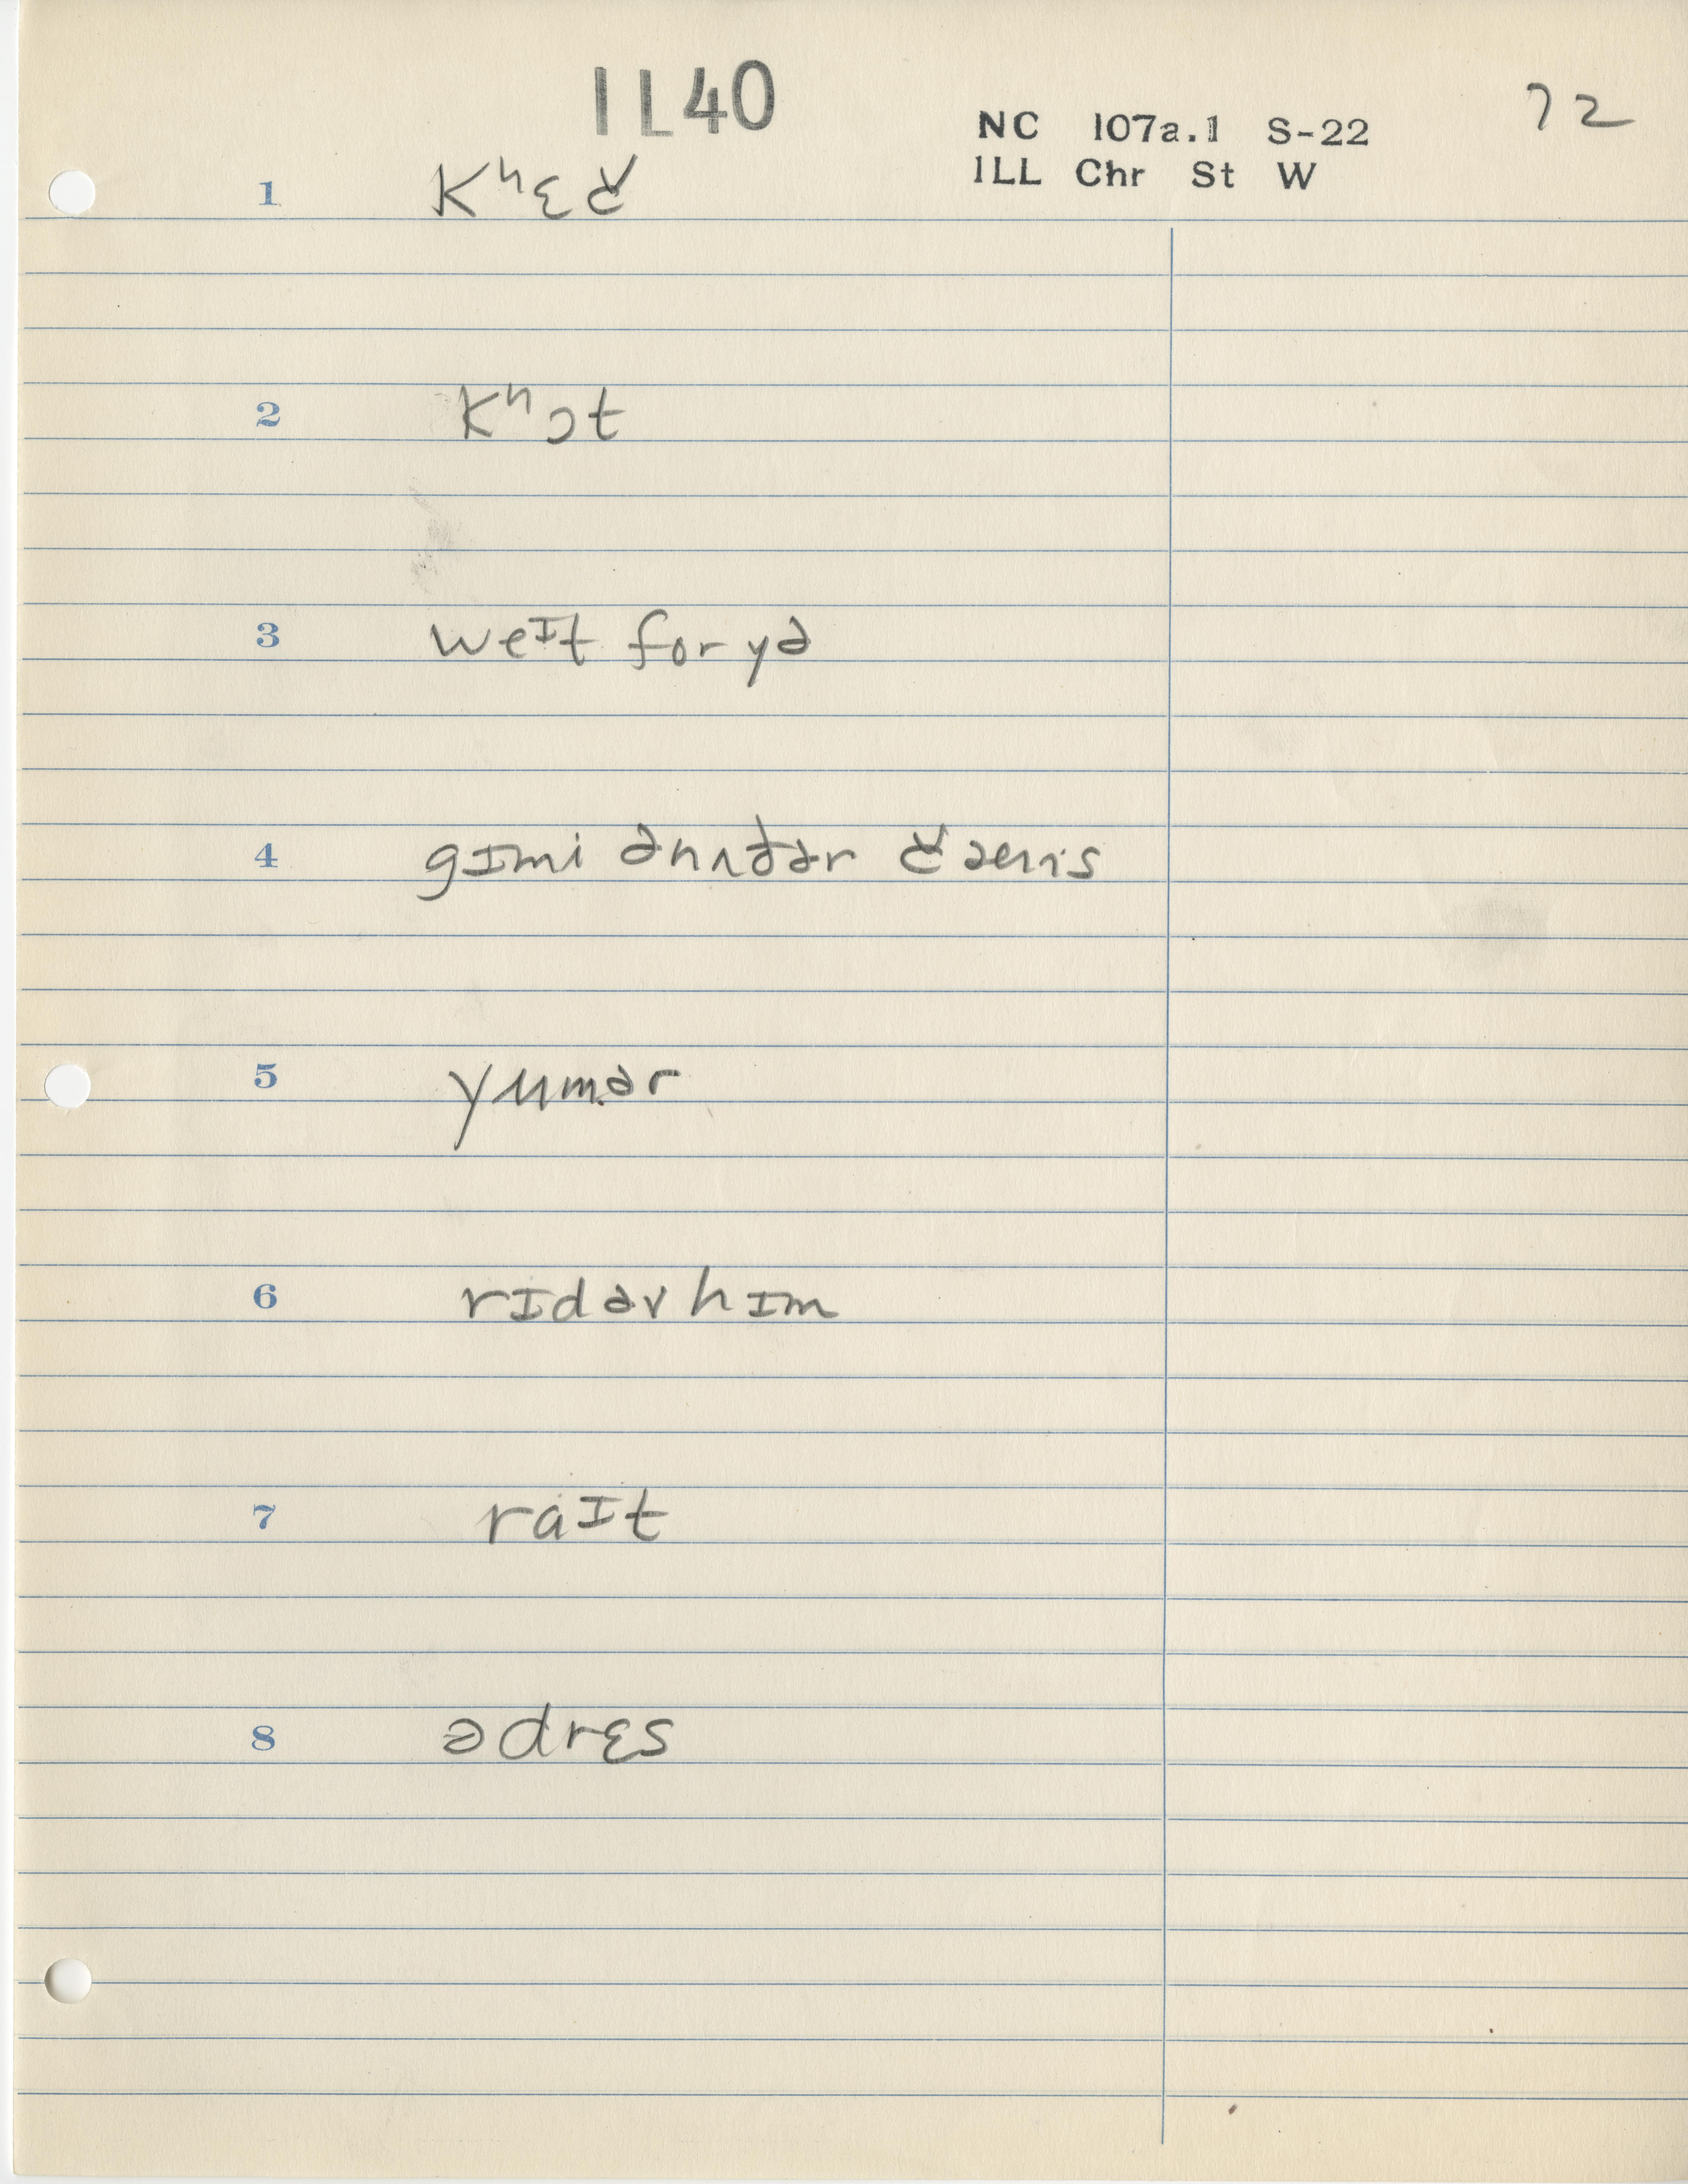 IL40
NC 107a.1 S-22
ILL Chr St W
72
1 Kʰɛč
2 Kʰɔt
3 weᶦt for yə
4 gɪmi ənʌðər čæns
5 yumər
6 rɪdəv hɪm
7 raᶦt
8 ədrɛs